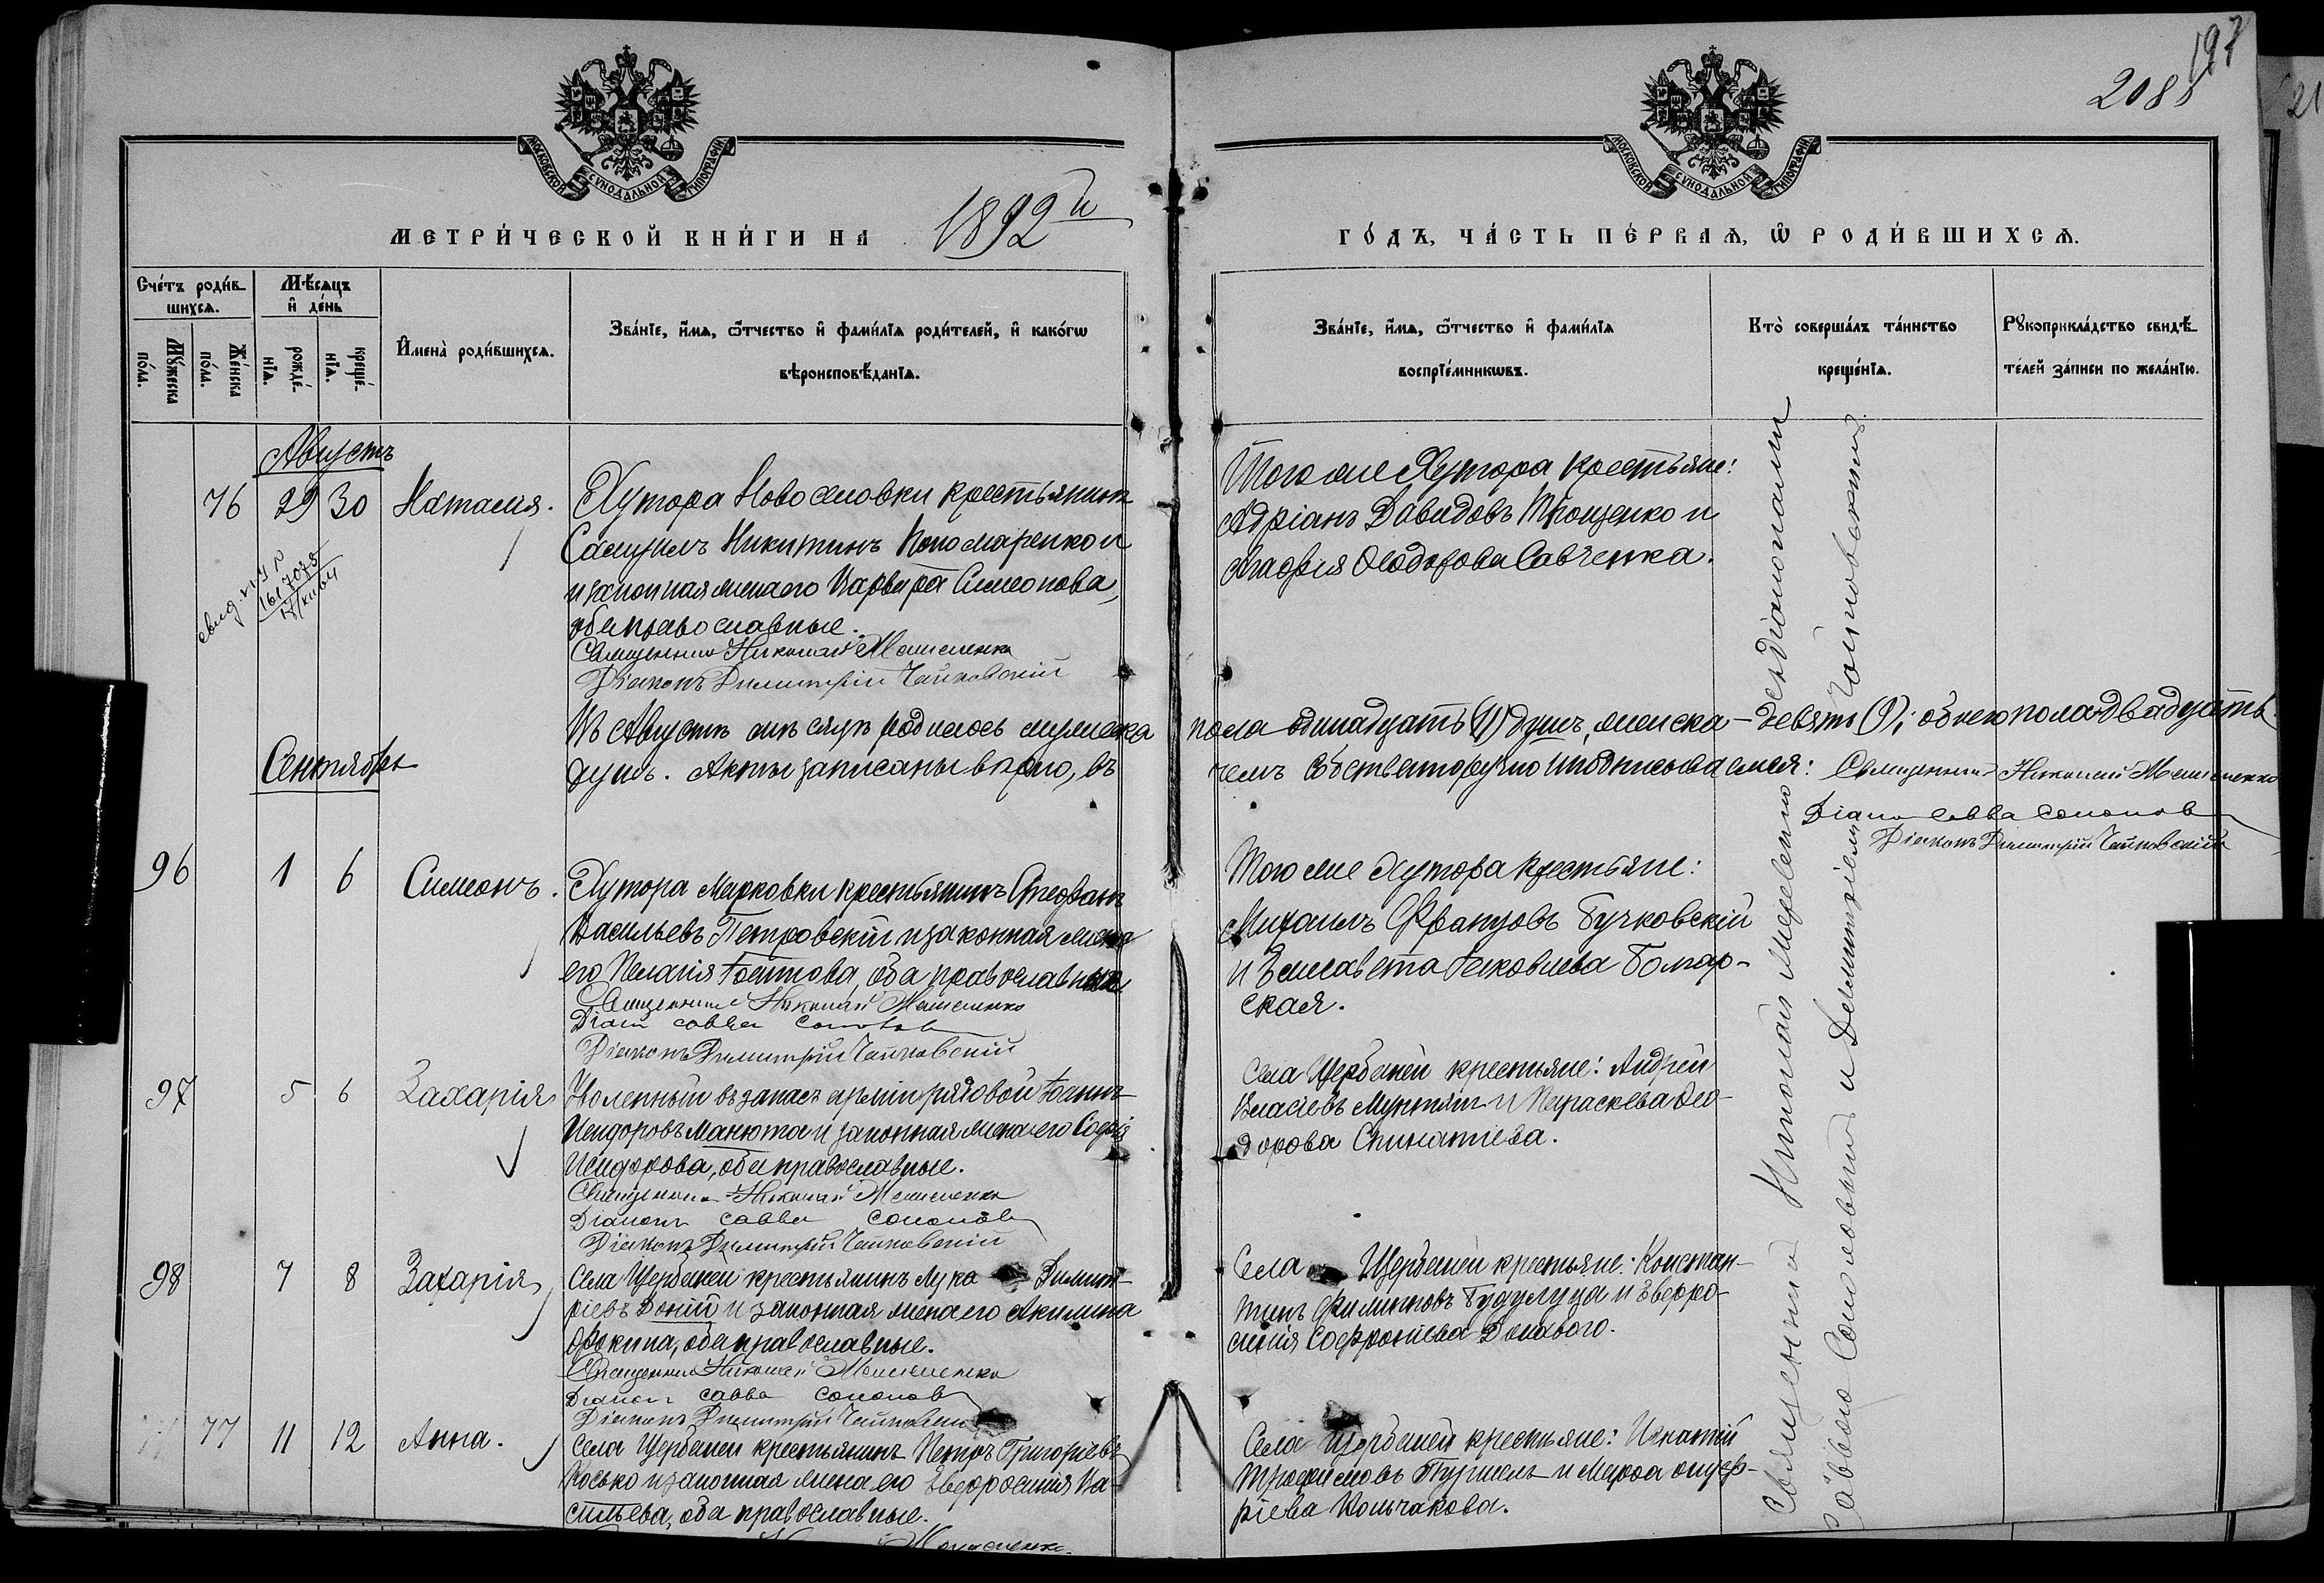 197
2088
21
МОСКОВСКОЙ СУНОДАЛЬНОЙ ТИПОГРАФІИ
МОСКОВСКОЙ СУНОДАЛЬНОЙ ТИПОГРАФІИ
МЕТРИ́ЧЕСКОЙ КНИ́ГИ НА 1892й
ГО́ДЪ, ЧА́СТЬ ПЕ́РВАѦ, Ѡ҆ РОДИ́ВШИХСѦ.
Сче́тъ роди́в-
шихсѧ.
Мꙋ́жеска по́ла.
Же́нска по́ла.
Мѣ́сѧцъ
и҆ де́нь
рожде́-
нїѧ.
креще́-
нїѧ.
И҆мена̀ роди́вшихсѧ.
Зва́нїе, и҆́мѧ, ѻ҆́тчество и҆ фами́лїѧ роди́телей, и҆ како́гѡ
вѣроисповѣ́данїѧ.
Зва́нїе, и҆́мѧ, ѻ҆́тчество и҆ фами́лїѧ
воспрїе́мникѡвъ.
Кто̀ соверша́лъ та́инство
креще́нїѧ.
Рꙋкоприкла́дство свидѣ́-
телей за́писи по жела́нїю.
Августъ
76 29 30 Наталія.
Хутора Новоселовки крестьянинъ
Самуилъ Никитинъ Пономаренко и
законная жена его Варвара Симеонова,
оба православные.
Священникъ Николай
Діаконъ Димитрій Чайковскій
Того же Хутора крестьяне:
Адріанъ Давидовъ Трощенко и
Агафія Ѳеодорова Савченка.
Въ Августѣ мѣсяцѣ родилось мужеска
пола одинадцать (11) душъ, женска – девять (9); обоего пола двадцать
душъ. Акты записаны вѣрно, въ
чемъ собственноручно и подписываемся: Священникъ Николай
Діаконъ Савва Соколов
Діаконъ Димитрій Чайковскій
Сентябрь
96 1 6 Симеонъ.
Хутора Марковки крестьянинъ Стефанъ
Васильевъ Петровскій и законная жена
его Пелагія, оба православные
Священникъ Николай
Діакон Савва Соколов
Діаконъ Димитрій Чайковскій
Того же Хутора крестьяне:
Михаилъ Францовъ Бучковскій
и Елисавета Яковлева Болгар-
ская.
97 5 6 Захарія
Уволенный въ запасъ арміи рядовой Іоаннъ
Исидоровъ Манюта и законная жена его Софія
Исидорова, оба православные.
Священникъ Николай
Діаконъ Савва Соколов
Діаконъ Димитрій Чайковскій
Села Щербаней крестьяне: Андрей
Власіевъ Мунтян и Параскева Ѳео-
дорова Спинатіева.
98 7 8 Захарія
Села Щербаней крестьянинъ Лука Димит-
ріевъ Доній и законная жена его Акилина
Фокина, оба православные.
Священникъ Николай
Діакон Савва Соколов
Діаконъ Димитрій
Села Щербаней крестьяне: Констан-
тинъ Филипповъ Будулуца и Евфро-
синія Софроніева
77 11 12 Анна.
Села Щербаней крестьянинъ Петръ Григоріевъ
Косько и законная жена его Евфросинія Ва-
сильева, оба православные.
Села Щербаней крестьяне: Игнатій
Трофимовъ и Марѳа
ріева Колчакова.
Священникъ Николай
Саввою Соколовымъ и Димитріемъ Чайковскимъ